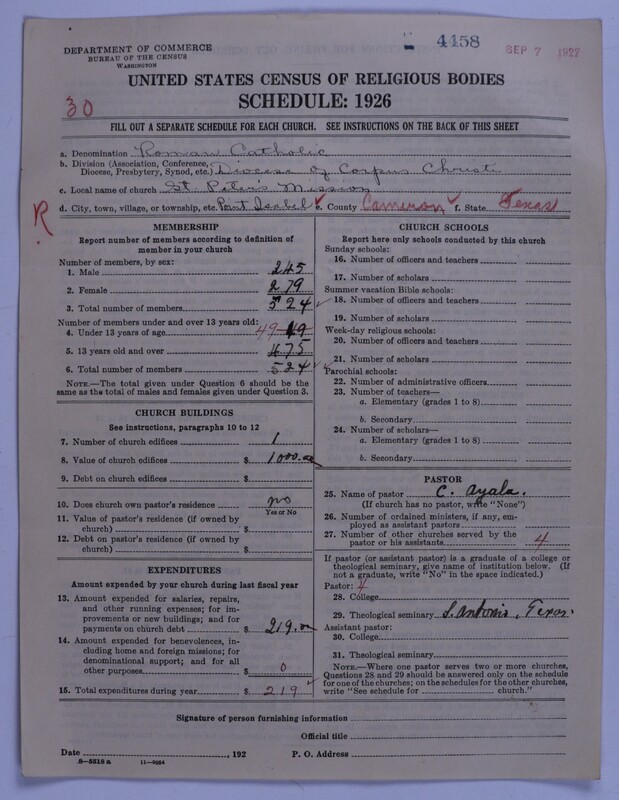 4458
SEP 7 1927
DEPARTMENT OF COMMERCE
BUREAU OF THE CENSUS
WASHINGTON
UNITED STATES CENSUS OF RELIGIOUS BODIES
SCHEDULE: 1926
30
FILL OUT A SEPARATE SCHEDULE FOR EACH CHURCH. SEE INSTRUCTIONS ON THE BACK OF THIS SHEET
a. Denomination Roman Catholic
b. Division (Association, Conference, Diocese, Presbytery, Synod, etc.) Diocese of Corpus Christi
c. Local name of church St. Peters Mission
R
d. City, town, village, or township, etc. Point Isabel e. County Cameron f. State Texas
MEMBERSHIP
Report number of members according to definition of
member in your church
Number of members, by sex:
1. Male 245
2. Female 279
3. Total number of members 524
Number of members under and over 13 years old:
4. Under 13 years of age 49 49
5. 13 years old and over 475
6. Total number of members 524
NOTE.—The total given under Question 6 should be
same as the total of males and females given under Question 3.
CHURCH BUILDINGS
See instructions, paragraphs 10 to 12
7. Number of church edifices 1
8. Value of church edifices $ 1000.00
9. Debt on church edifices $
10. Does church own pastor's residence no
Yes or No
11. Value of pastor's residence (if owned by
church) $
12. Debt on pastor's residence (if owned by
church) $
EXPENDITURES
Amount expended by your church during last fiscal year
13. Amount expended for salaries, repairs,
and other running expenses; for im-
provements or new buildings; and for
payments on church debt $ 219.00
14. Amount expended for benevolences, in-
cluding home and foreign missions; for
denominational support; and for all
other purposes $ 0
15. Total expenditures during year $ 219
CHURCH SCHOOLS
Report here only schools conducted by this church
Sunday schools:
16. Number of officers and teachers
17. Number of scholars
Summer vacation Bible schools:
18. Number of officers and teachers
19. Number of scholars
Week-day religious schools:
20. Number of officers and teachers
21. Number of scholars
Parochial schools:
22. Number of administrative officers
23. Number of teachers—
a. Elementary (grades 1 to 8)
b. Secondary
24. Number of scholars—
a. Elementary (grades 1 to 8)
b. Secondary
PASTOR
25. Name of pastor C. Ayala.
(If church has no pastor, write "None")
26. Number of ordained ministers, if any, em-
ployed as assistant pastors
27. Number of other churches served by the
pastor or his assistants 4
If pastor (or assistant pastor) is a graduate of a college or
theological seminary, give name of institution below. (If
not a graduate, write "No" in the space indicated.)
Pastor: 4
28. College
29. Theological seminary S. Antonio, Texas.
Assistant pastor:
30. College
31. Theological seminary
NOTE.—Where one pastor serves two or more churches,
Questions 28 and 29 should be answered only on the schedule
for one of the churches; on the schedules for the other churches,
write "See schedule for church."
Signature of person furnishing information
Official title
Date , 192 P. O. Address
8—5518 a 11—9054